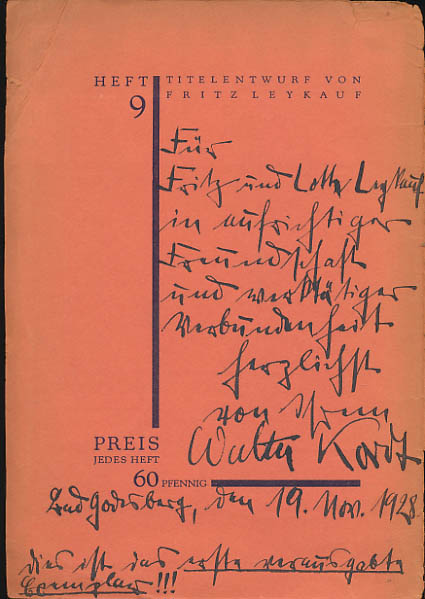 HEFT
9
TITELENTWURF VON
FRITZ LEYKAUF
Für
Fritz und Lotte Leykauf
in aufrichtiger
Freundschaft
und werktätiger
Verbundenheit
herzlichst
von Ihrem
Walter Kordt
PREIS
JEDES HEFT
60 PFENNIG
Bad Godesberg, den 19. Nov. 1928.
dies ist das erste verausgabte
Exemplar!!!